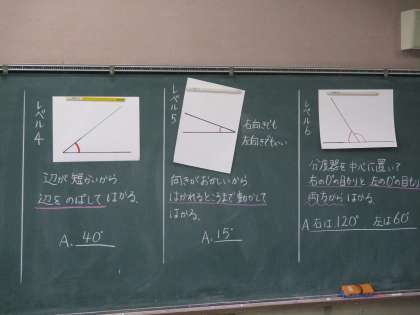 レベル4
辺が短かいから
辺をのばしてはかる。
A. 40°
レベル5
右向きでも
左向きでもいい
向きがおかしいから
はかれるところまで動かして
はかる。
A. 15°
レベル6
分度器を中心に置いて
右の0°の目もりと左の0°の目もり
両方からはかる
A 右は120° 左は60°